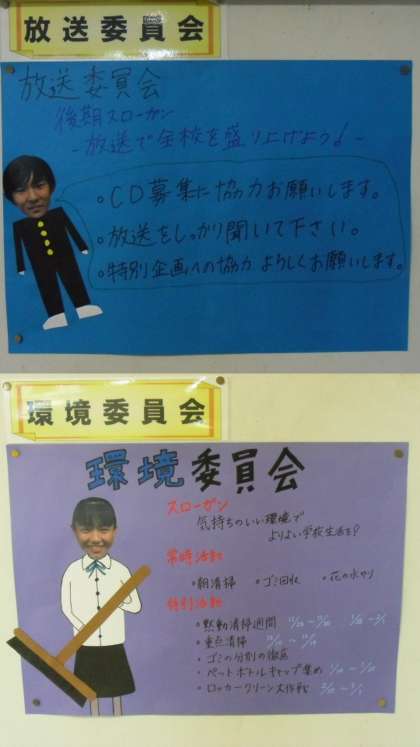 放送委員会
放送委員会
後期スローガン
-放送で全校を盛り上げよう!-
。CD募集に協力お願いします。
。放送をしっかり聞いて下さい。
。特別企画への協力よろしくお願いします。
環境委員会
環境委員会
スローガン
気持ちのいい環境で
よりよい学校生活を?
常時活動
。朝清掃 。ゴミ回収 。花の水やり
特別活動
。黙動清掃週間
。重点清掃
。ゴミの分別の徹底
。ペットボトルキャップ集め
。ロッカークリーン大作戦